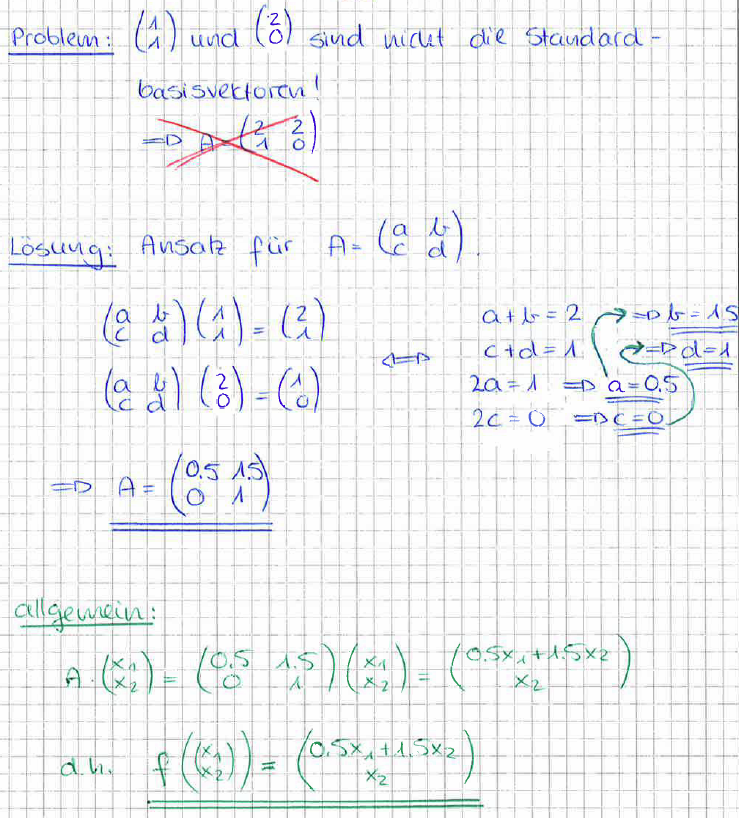 Problem: (1 1) und (2 0) sind nicht die Standard-
basisvektoren!
⇒ A = (2 2 / 1 0)
Lösung: Ansatz für A = (a b / c d).
(a b / c d) (1 / 1) = (2 / 1)
(a b / c d) (2 / 0) = (1 / 0)
⇔
a+b = 2 ⇒ b = 1.5
c+d = 1 ⇒ d = 1
2a = 1 ⇒ a = 0.5
2c = 0 ⇒ c = 0
⇒ A = (0.5 1.5 / 0 1)
allgemein:
A · (x₁ / x₂) = (0.5 1.5 / 0 1) (x₁ / x₂) = (0.5x₁ + 1.5x₂ / x₂)
d.h. f((x₁ / x₂)) = (0.5x₁ + 1.5x₂ / x₂)